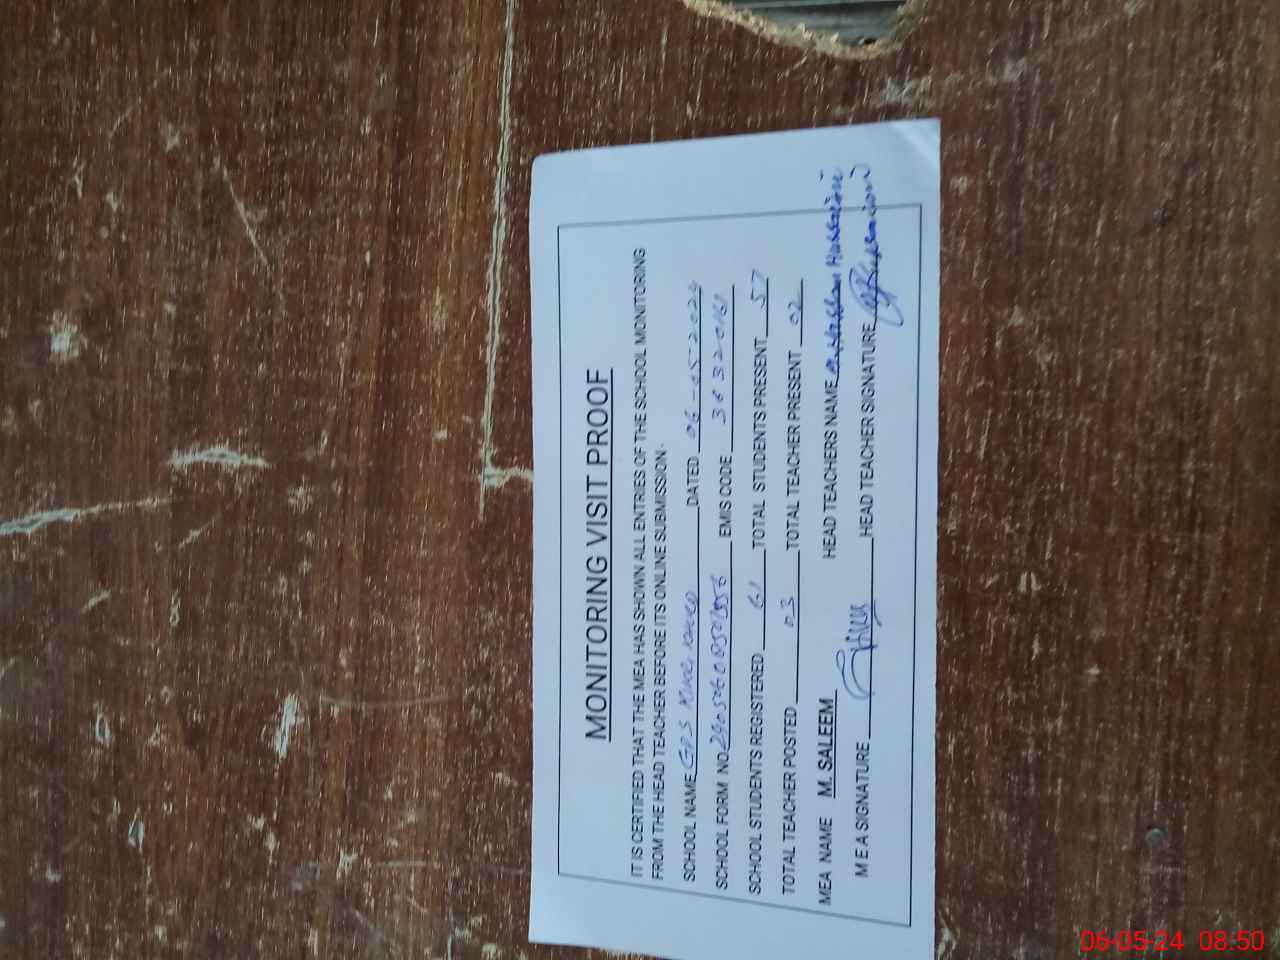 MONITORING VISIT PROOF
IT IS CERTIFIED THAT THE MEA HAS SHOWN ALL ENTRIES OF THE SCHOOL MONITORING
FROM THE HEAD TEACHER BEFORE ITS ONLINE SUBMISSION.
SCHOOL NAME GPS DATED 06-05-2024
SCHOOL FORM NO EMIS CODE
SCHOOL STUDENTS REGISTERED 61 TOTAL STUDENTS PRESENT 57
TOTAL TEACHER POSTED 03 TOTAL TEACHER PRESENT 02
MEA NAME M. SALEEM HEAD TEACHERS NAME
M E A SIGNATURE HEAD TEACHER SIGNATURE
06-05-24 08:50